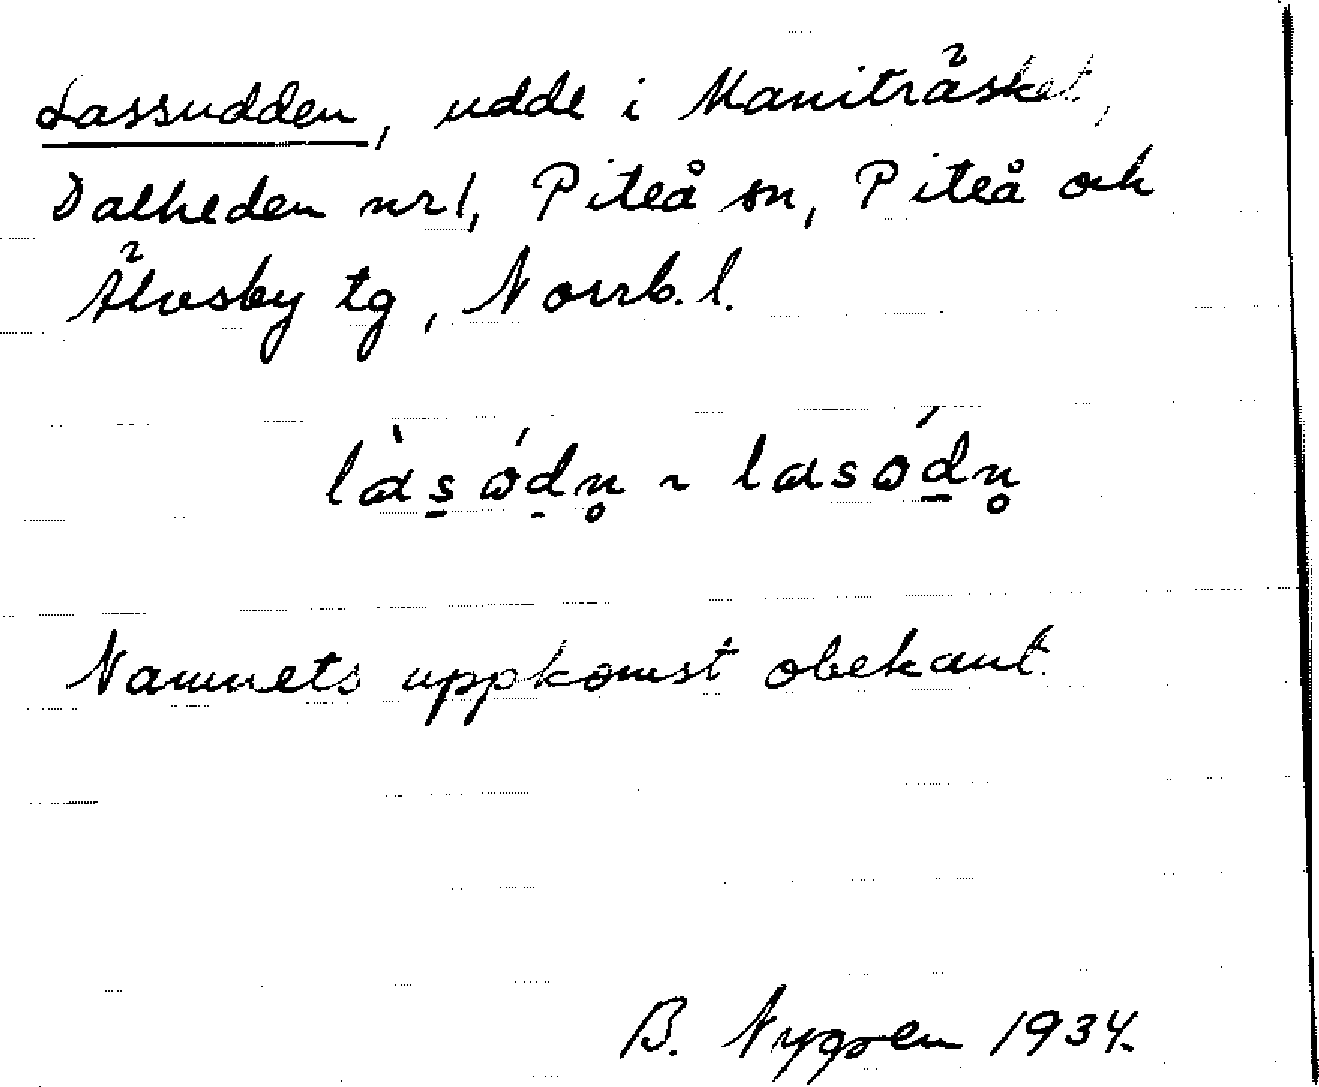 Lassudden, udde i Maniträsket,
Dalheden nr 1, Piteå sn, Piteå och
Älvsby tg, Norrb. l.
lɑ̀s̠ ǿd̠n̥ ~ lɑsǿd̠n̥
Namnets uppkomst obekant.
B. Nygren 1934.